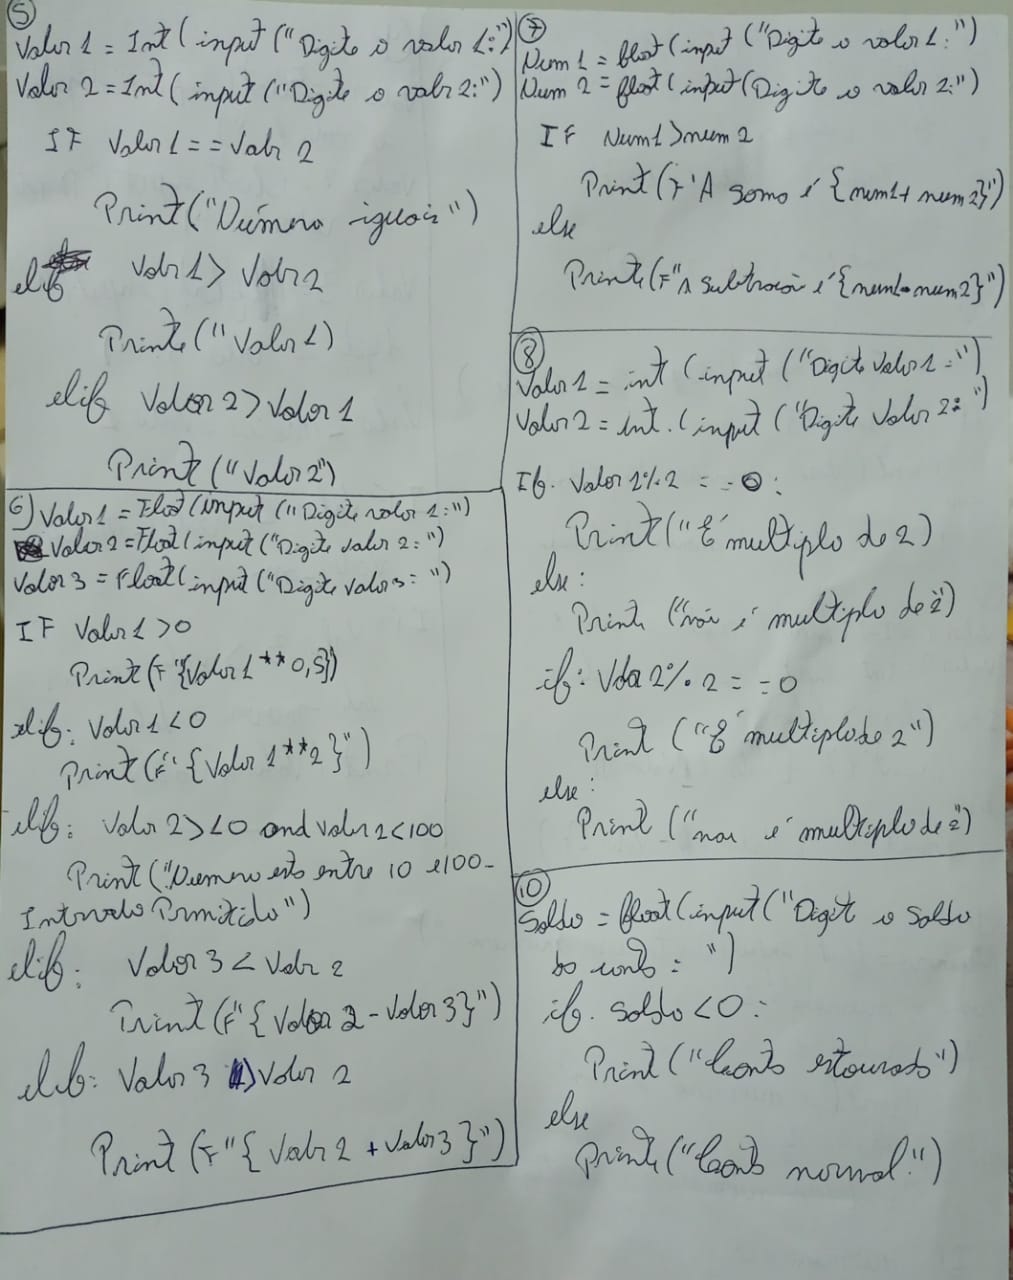 5
Valor 1 = Int (input ("Digite o valor 1:")
Valor 2 = Int (input ("Digite o valor 2:")
IF Valor 1 == Valor 2
Print ("Número iguais")
elif Valor 1 > Valor 2
Printe ("Valor 1)
elif Valor 2 > Valor 1
Print ("Valor 2")
6) Valor 1 = Float (input ("Digite valor 1:")
Valor 2 = Float (input ("Digite valor 2:")
Valor 3 = Float (input ("Digite valor 3: ")
IF Valor 1 > 0
Print (F"{Valor 1 ** 0,5})
elif: Valor 1 < 0
Print (F"{Valor 1 ** 2}")
elif: Valor 2 > <0 and Valor 2 < 100
Print ("Número esto entre 10 e 100-
Intervalo Permitido")
elif: Valor 3 < Valor 2
Print (F"{Valor 2 - Valor 3}")
elif: Valor 3 > Valor 2
Print (F"{Valor 2 + Valor 3}")
7
Num 1 = float (input ("Digite o valor 1:")
Num 2 = float (input (Digite o valor 2:")
IF Num 1 > num 2
Print (F'A soma é {num1 + num2}")
else
Printe (F"A subtração é {num1 - num2}")
8
Valor 1 = int (input ("Digite Valor 1 = ")
Valor 2 = int. (input ("Digite Valor 2: ")
If. Valor 1 % 2 == 0:
Print ("É multiplo de 2)
else:
Print ("não é multiplo de 2")
if: Valor 2 % 2 == 0
Print ("É multiplo de 2")
else:
Print ("não é multiplo de 2")
10
Saldo = float (input ("Digite o Saldo
da conta = ")
if. saldo < 0:
Print ("Conta estourada")
else
Printe ("Conta normal!")